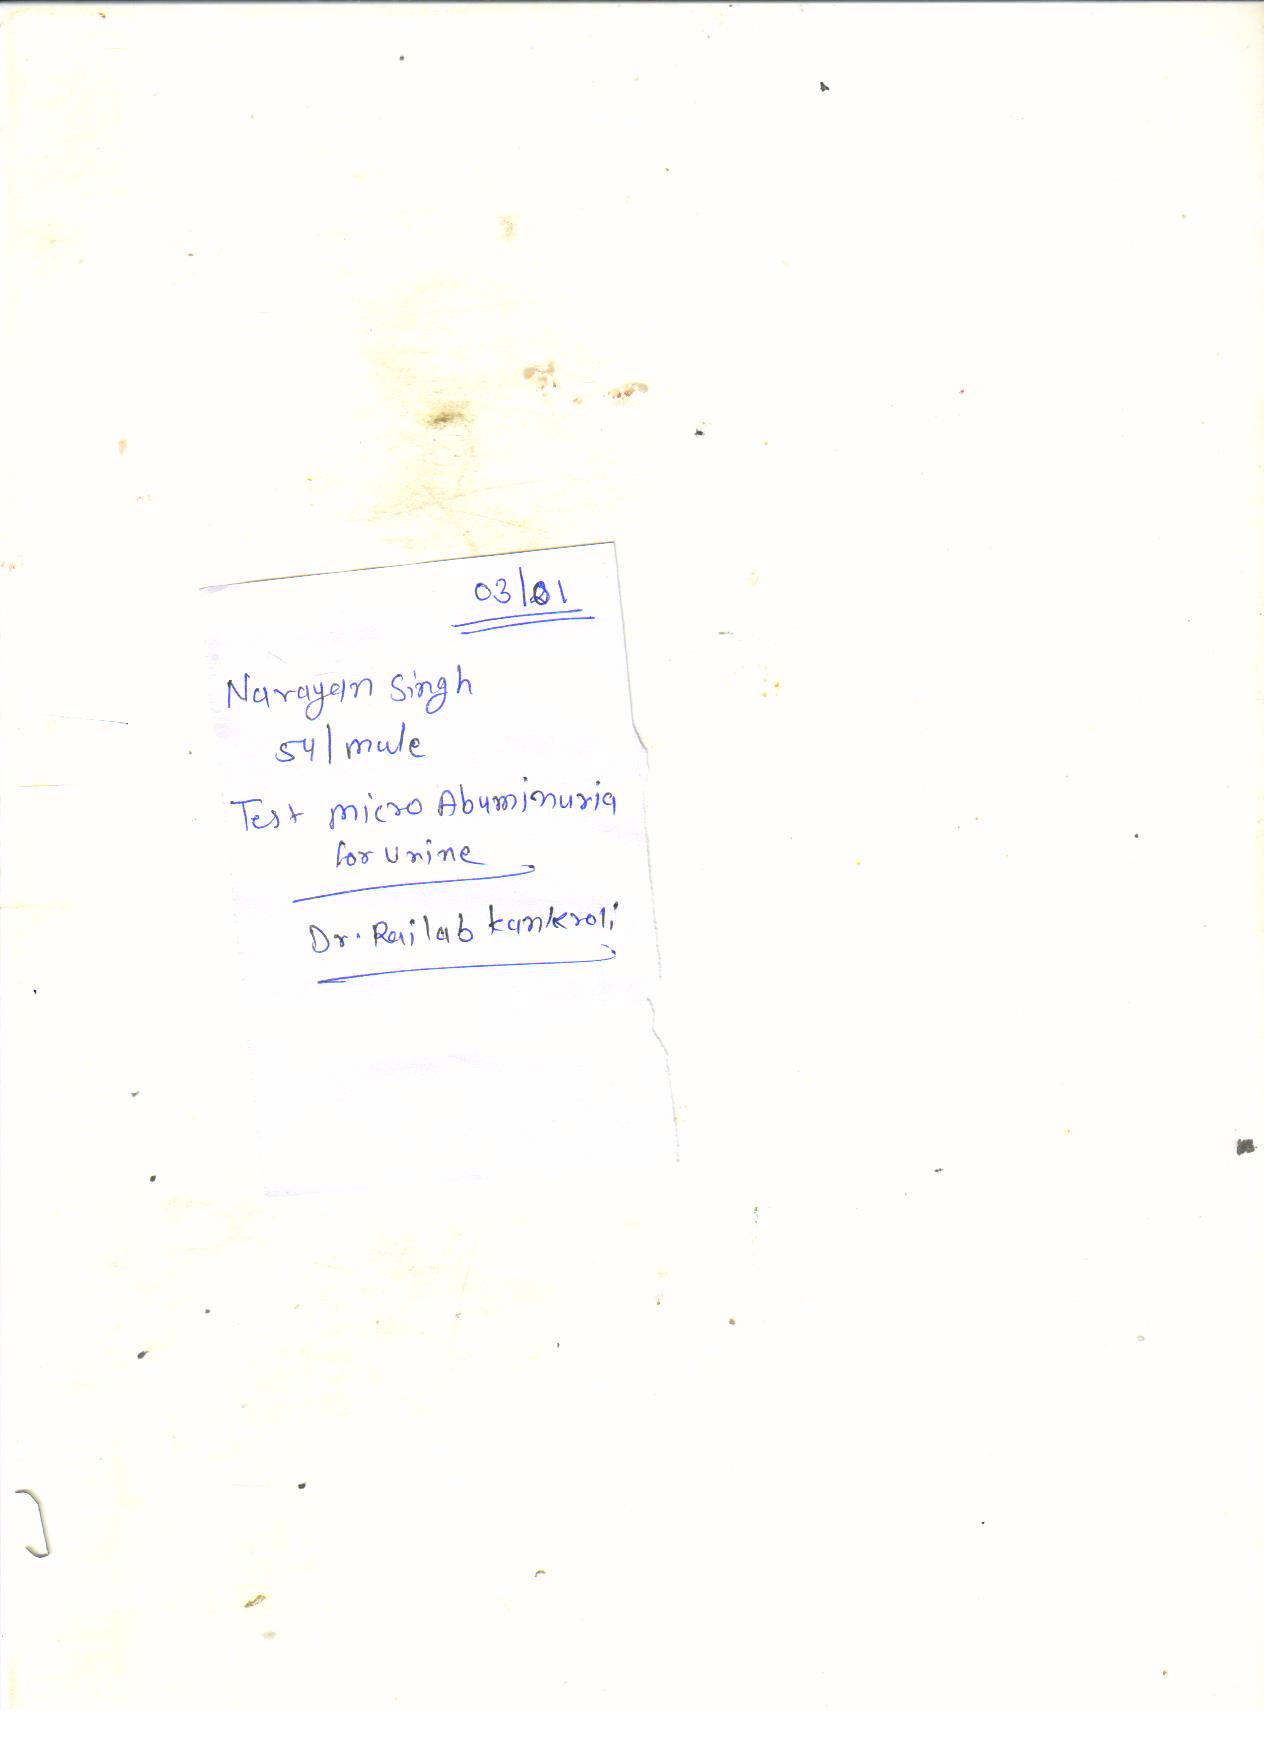 03/01
Narayan Singh
54/male
Test micro Abuminuria
for Urine
Dr. Rai lab Kankroli